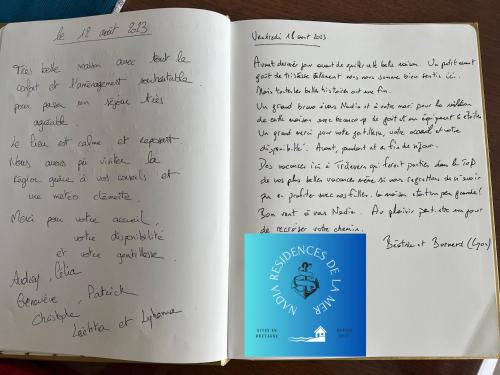 le 12 août 2023
Très belle maison avec tout le
confort et l'aménagement souhaitable
pour passer un séjour très
agréable
Le lieu est calme et reposant.
Nous avons pû visiter la
Région grâce à vos conseils et
une météo clémente.
Merci pour votre accueil,
votre disponibilité
et votre gentillesse
Audrey, Célia
Geneviève, Patrick
Christophe
Laëtitia et
Vendredi 18 août 2023
Avant dernier jour avant de quitter cette belle maison. Un petit avant
goût de tristesse tellement nous nous sommes bien sentis ici.
Mais toutes les belles histoires ont une fin.
Un grand bravo à vous Nadia et à votre mari pour la
de cette maison avec beaucoup de goût et un équipement 5 étoiles
Un grand merci pour votre gentillesse, votre accueil et votre
disponibilité. Avant, pendant et en fin de séjour.
Des vacances ici à qui feront parties dans le TOP
de nos plus belles vacances même si nous regrettons de n'avoir
pas pu profiter avec nos filles. la maison était un peu grande!
Bon vent à vous Nadia. Au plaisir peut-être un jour
de recroiser votre chemin.
Béatrice et Bernard (Lyon)
NADIA RESIDENCES DE LA MER
GITES EN BRETAGNE
DEPUIS